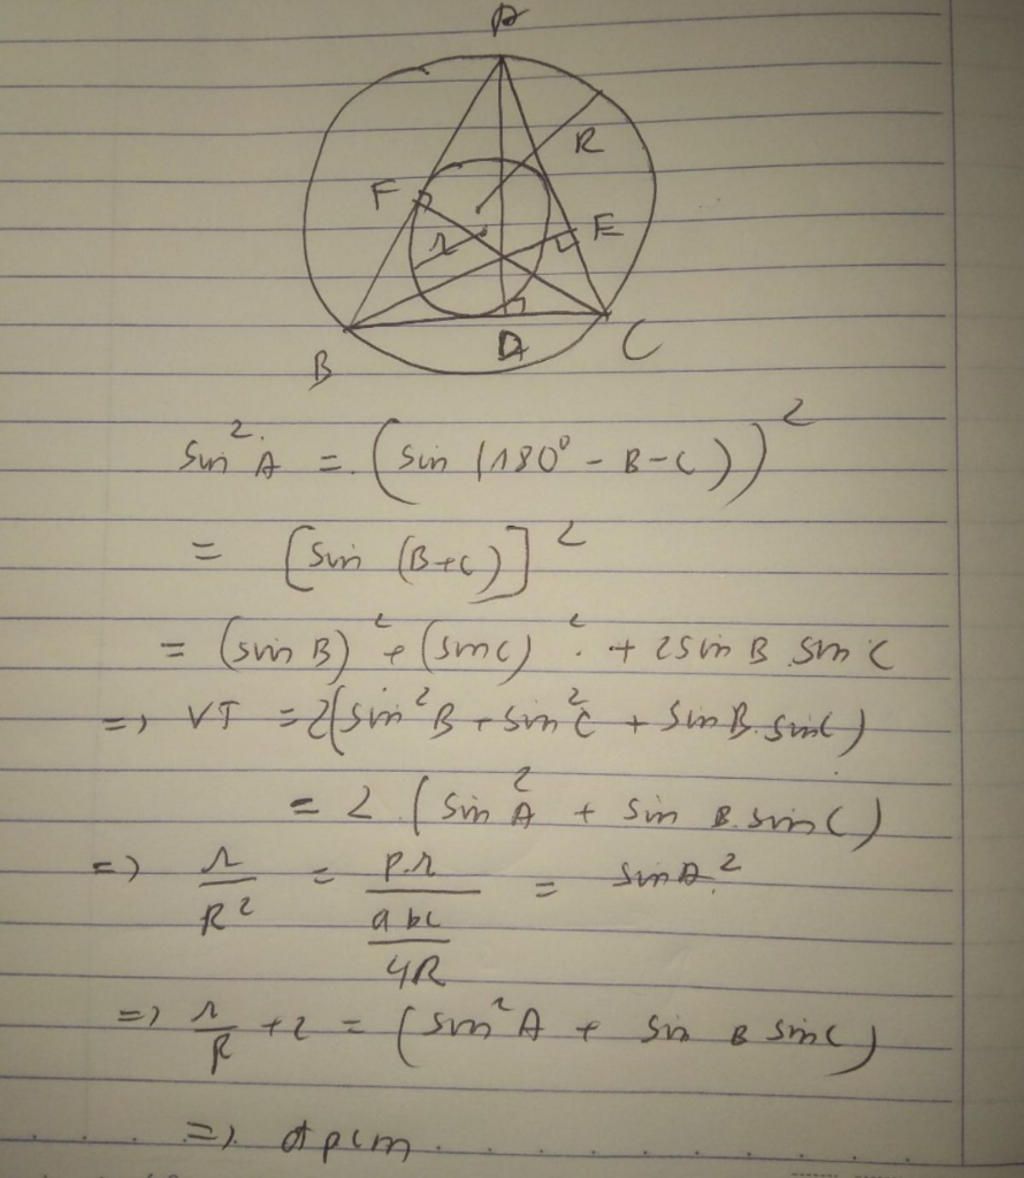 A
R
F
E
r
B
D
C
sin²A = (sin (180° - B - C))²
= [sin (B+C)]²
= (sin B)² + (sin C)² . + 2 sin B . sin C
=> VT = 2(sin²B + sin²C + sin B. sin C)
= 2 (sin²A + sin B. sin C)
=> r/R² = p.r/(abc/4R) = sin A²
=> r/R + 2 = (sin²A + sin B sin C)
=> đpcm